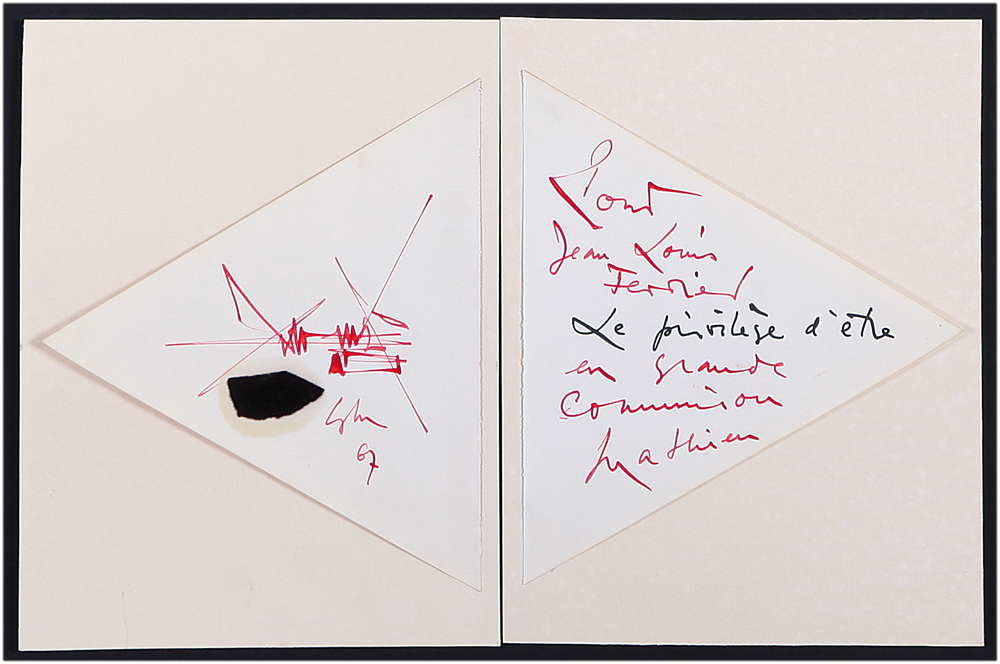 67
Pour
Jean Louis
Ferrier
Le privilège d'être
en grande
Communion
Mathieu